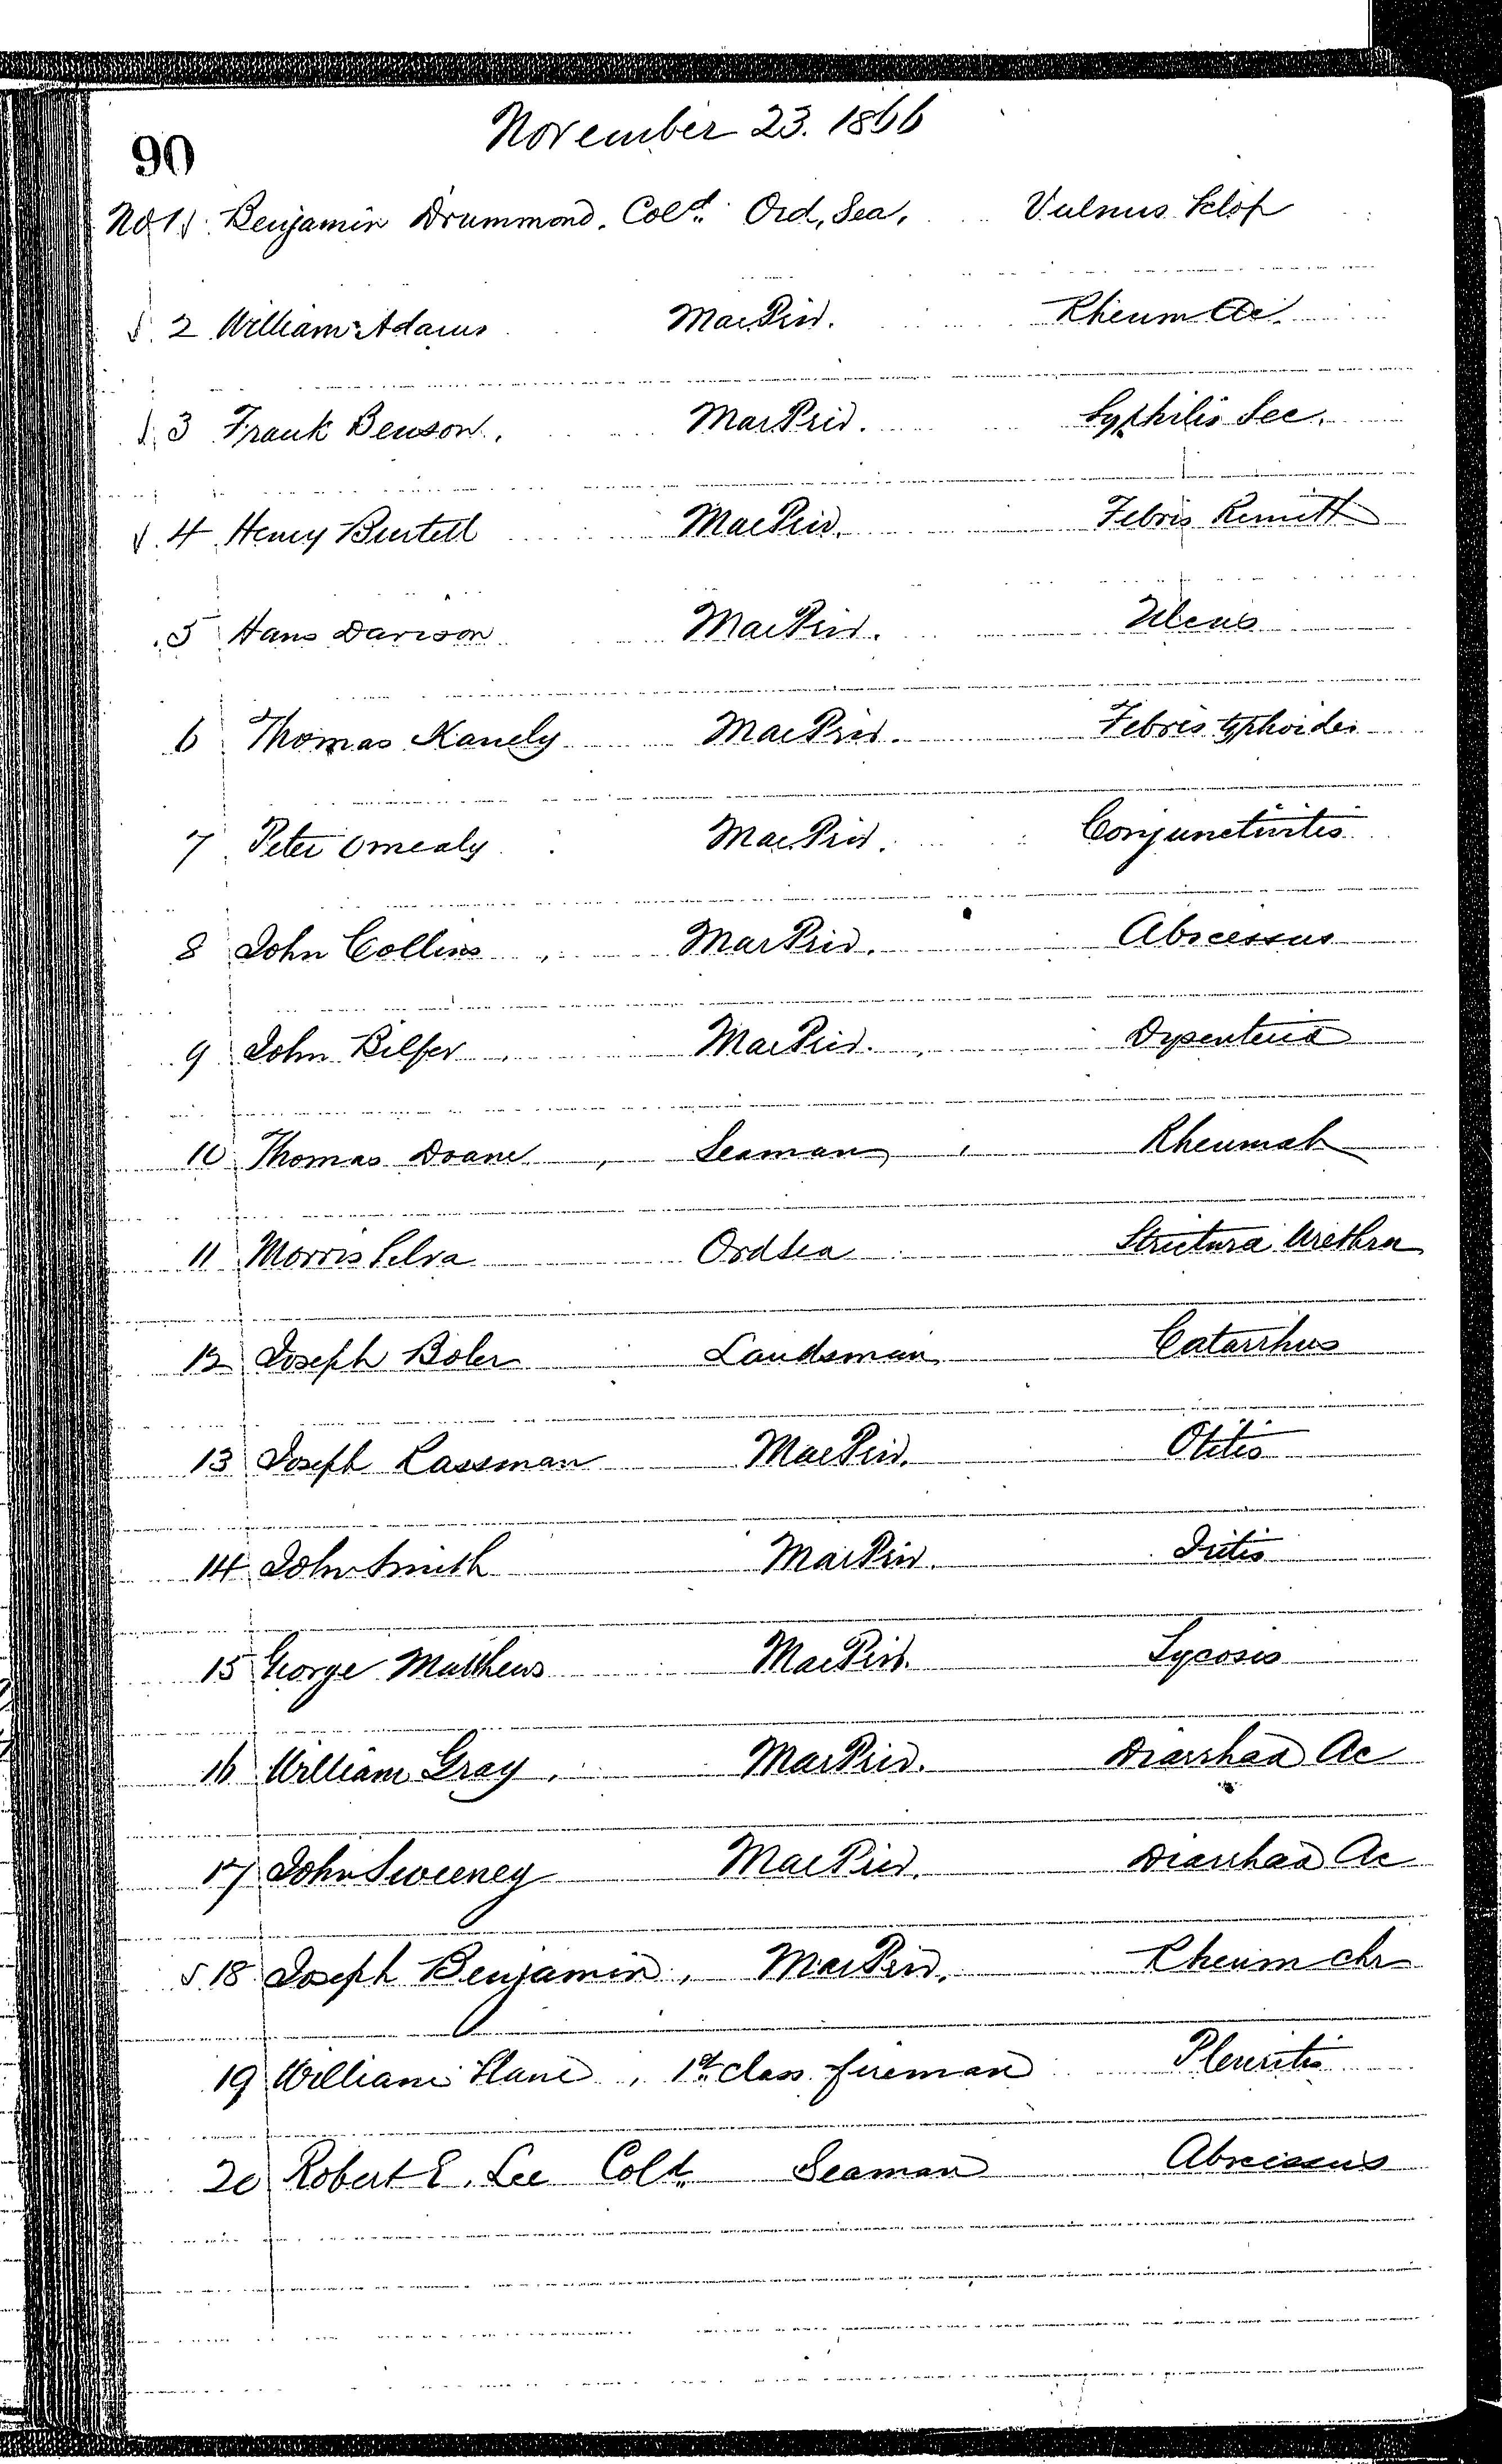 90
November 23. 1866
No 1 Benjamin Drummond. Cold. Ord, Sea, Vulnus Sclop
2 William Adams Mar Priv. Rheum Ac.
3 Frank Benson. Mar Priv. Syphilis Sec.
4 Henry Burtell Mar Priv. Febris Remitt
5 Hans Davison Mar Priv. Ulcus
6 Thomas Kanely Mar Priv. Febris typhoides
7 Peter Omealy Mar Priv. Conjunctivitis
8 John Collins Mar Priv. Abscessus
9 John Bilfer Mar Priv. Dysenteria
10 Thomas Doane Seaman Rheumat
11 Morris Selva Ord Sea Strictura Urethra
12 Joseph Boler Landsman Catarrhus
13 Joseph Rassman Mar Priv. Otitis
14 John Smith Mar Priv. Iritis
15 George Matthews Mar Priv. Sycosis
16 William Gray. Mar Priv. Diarrhaa Ac
17 John Sweeney Mar Priv. Diarrhaa Ac
18 Joseph Benjamin, Mar Priv. Rheum chr
19 William , 1st class fireman Pleuritis
20 Robert E. Lee Cold. Seaman Abscessus